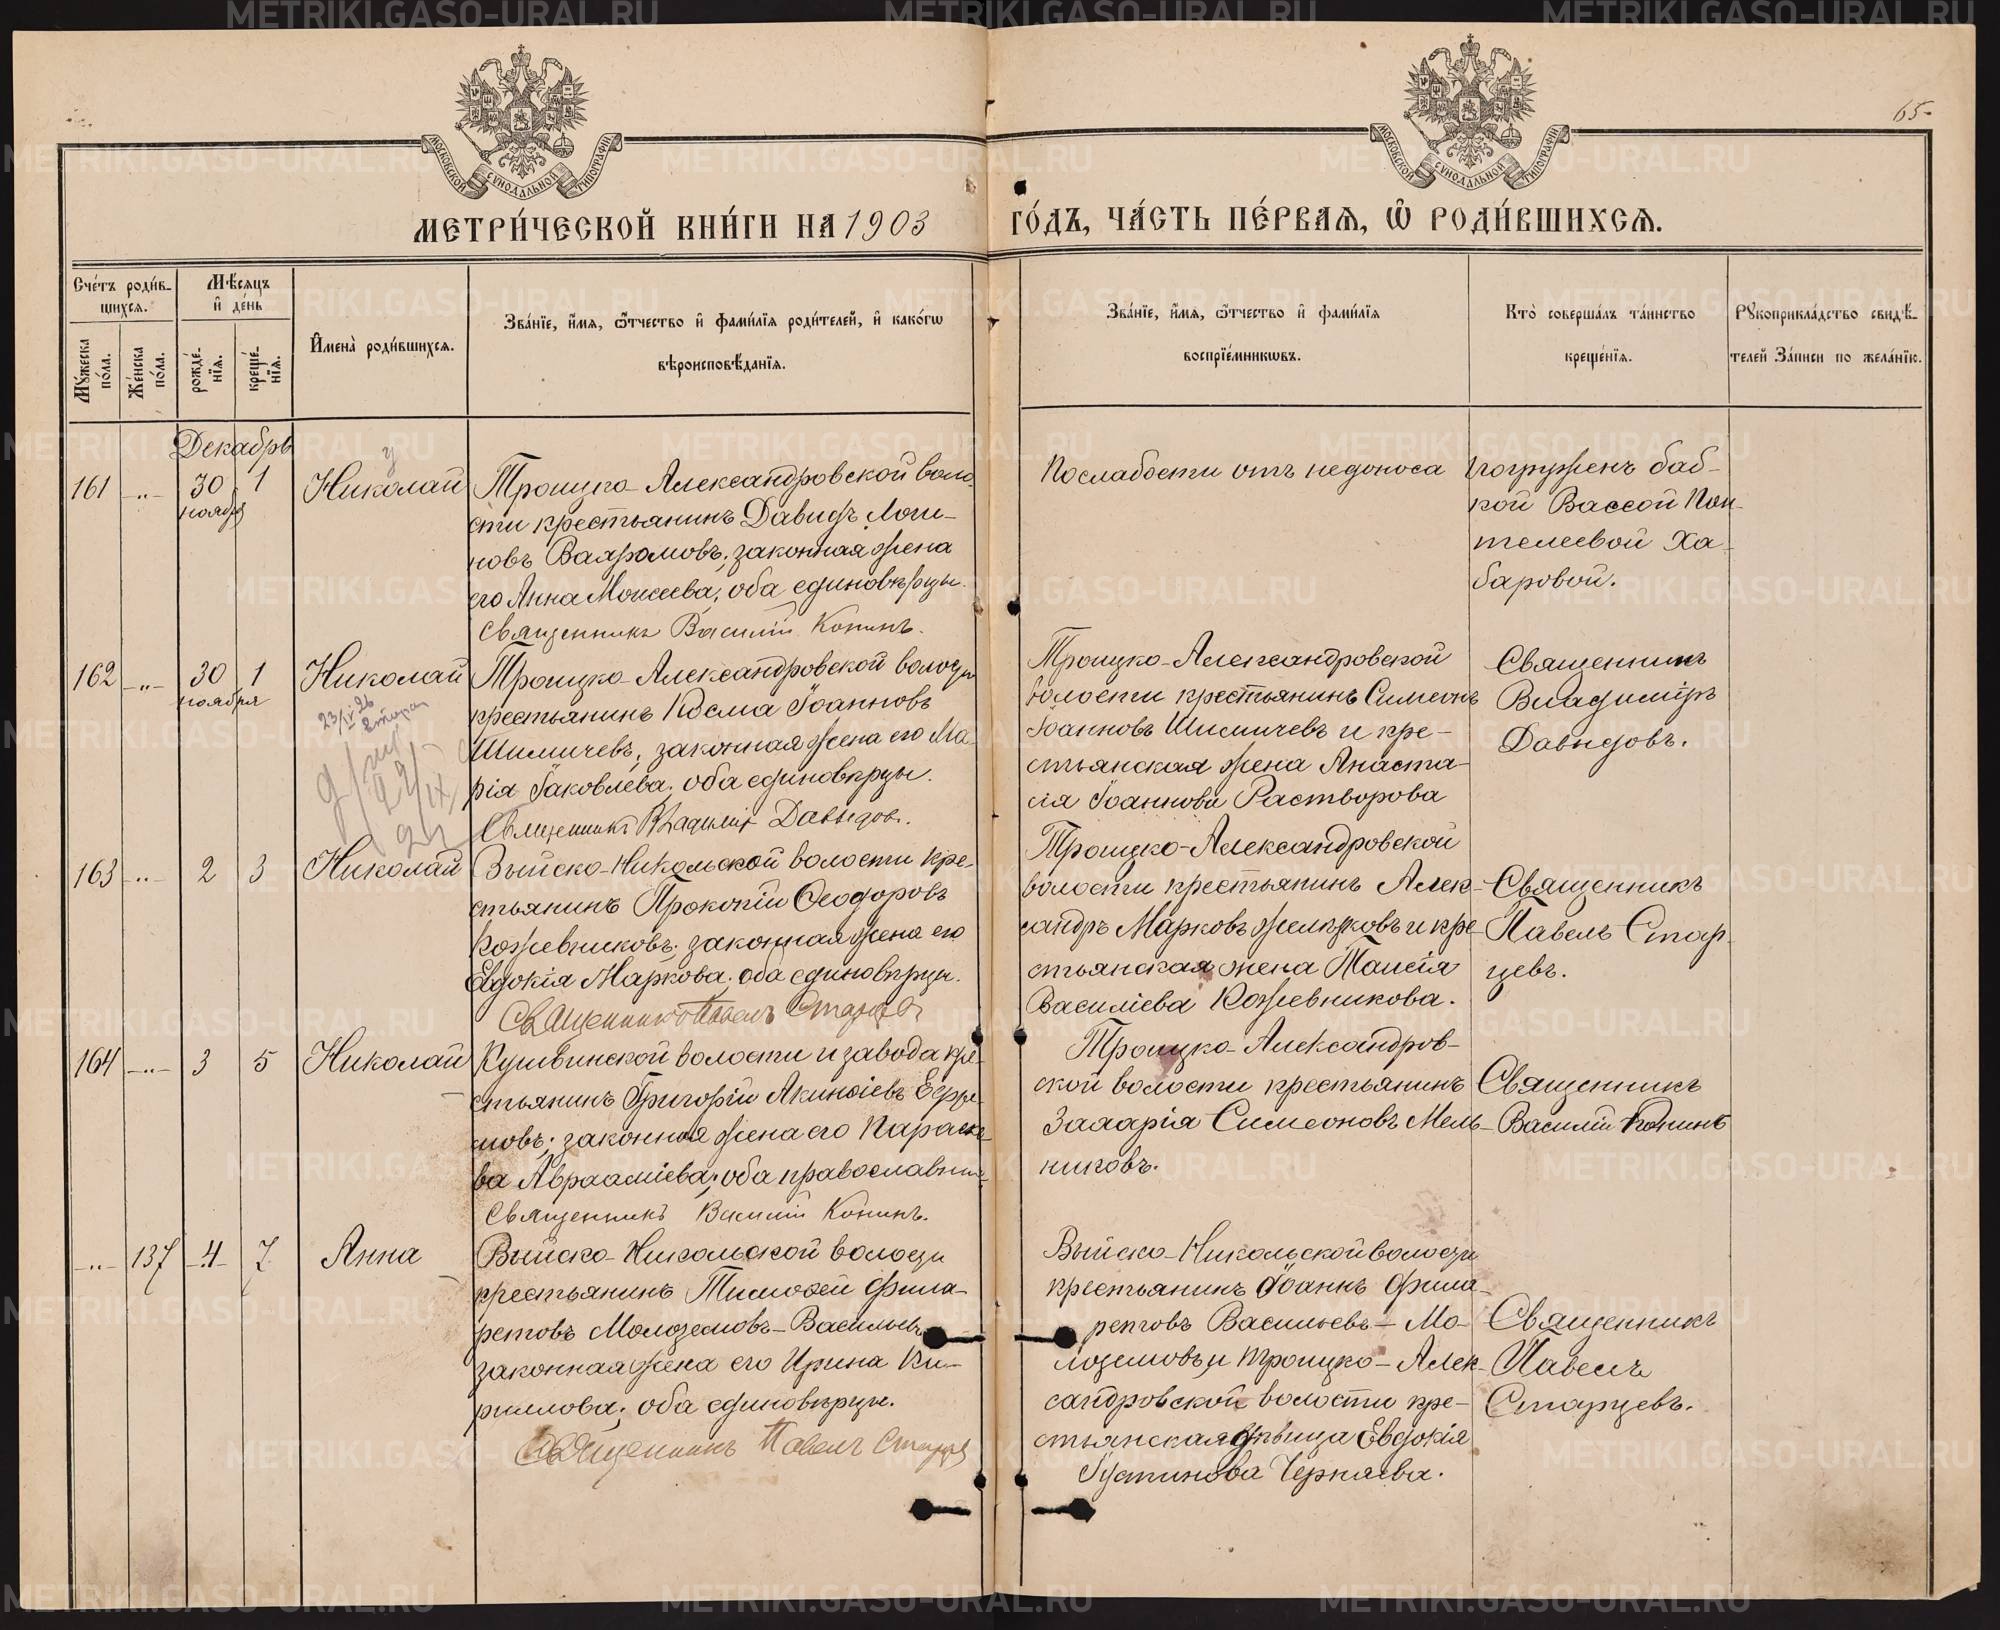 65
МОСКОВСКОЙ СУНОДАЛЬНОЙ ТИПОГРАФІИ
МОСКОВСКОЙ СУНОДАЛЬНОЙ ТИПОГРАФІИ
МЕТРИ́ЧЕСКОЙ КНИ́ГИ НА 1903
ГО́ДЪ, ЧА́СТЬ ПЕ́РВАѦ, Ѽ РОДИ́ВШИХСѦ.
Сче́тъ роди́в-
шихсѧ.
Мꙋ́жеска по́ла.
Же́нска по́ла.
Мѣ́сѧцъ
и҆ де́нь
рожде́-
нїѧ.
креще́-
нїѧ.
И҆мена̀ роди́вшихсѧ.
Зва́нїе, и҆́мѧ, ѻ҆́тчество и҆ фами́лїѧ роди́телей, и҆ како́гѡ
вѣроисповѣ́данїѧ.
Зва́нїе, и҆́мѧ, ѻ҆́тчество и҆ фами́лїѧ
воспрїе́мникѡвъ.
Кто̀ соверша́лъ та́инство
креще́нїѧ.
Рꙋкоприкла́дство свидѣ́-
телей за́писи по жела́нїю.
Декабрь
161 -„- 30 ноября 1 Николай
Троицко-Александровской воло-
сти крестьянинъ Давидъ Логи-
новъ законная жена
его Анна Моисеева, оба единовѣрцы.
Священникъ Василій Конинъ.
По слабости отъ недоноса
погруженъ баб-
кой Вассой Пан-
телеевой Ха-
баровой.
162 -„- 30 ноября 1 Николай
23/IV 26
Троицко-Александровской волости
крестьянинъ Косма Іоанновъ
Шимичевъ, законная жена его Ма-
рія Іаковлева, оба единовѣрцы.
Священникъ Владиміръ Давыдов.
Троицко-Александровской
волости крестьянинъ Симеонъ
Іоанновъ Шимичевъ и кре-
стьянская жена Анаста-
сія Іоаннова Растворова
Священникъ
Владиміръ
Давыдовъ.
163 -„- 2 3 Николай
Выйско-Никольской волости кре-
стьянинъ Прокопій Ѳеодоровъ
Кожевниковъ, законная жена его
Евдокія Маркова, оба единовѣрцы.
Священникъ Павелъ Старцев
Троицко-Александровской
волости крестьянинъ Алек-
сандръ Марковъ и кре-
стьянская жена Таисія
Василіева Кожевникова.
Священникъ
Павелъ Стар-
цевъ.
164 -„- 3 5 Николай
Кушвинской волости и завода кре-
стьянинъ Григорій Акинѳіевъ Ефре-
мовъ; законная жена его Параске-
ва Авраамiева, оба православные
Священникъ Василій Конинъ.
Троицко-Александров-
ской волости крестьянинъ
Захарія Симеоновъ Мель-
никовъ.
Священникъ
Василій Конинъ
-„- 137 4 7 Анна
Выйско-Никольской волости
крестьянинъ Тимоѳей Фила-
ретовъ Молоземовъ-Васильевъ
законная жена его Ирина Ки-
риллова, оба единовѣрцы.
Священникъ Павелъ Старцев
Выйско-Никольской волости
крестьянинъ Іоаннъ Фила-
ретовъ Васильевъ-Мо-
лоземовъ и Троицко-Алек-
сандровской волости кре-
стьянская дѣвица Евдокія
Іустинова Черняева.
Священникъ
Павелъ
Старцевъ.
METRIKI.GASO-URAL.RU